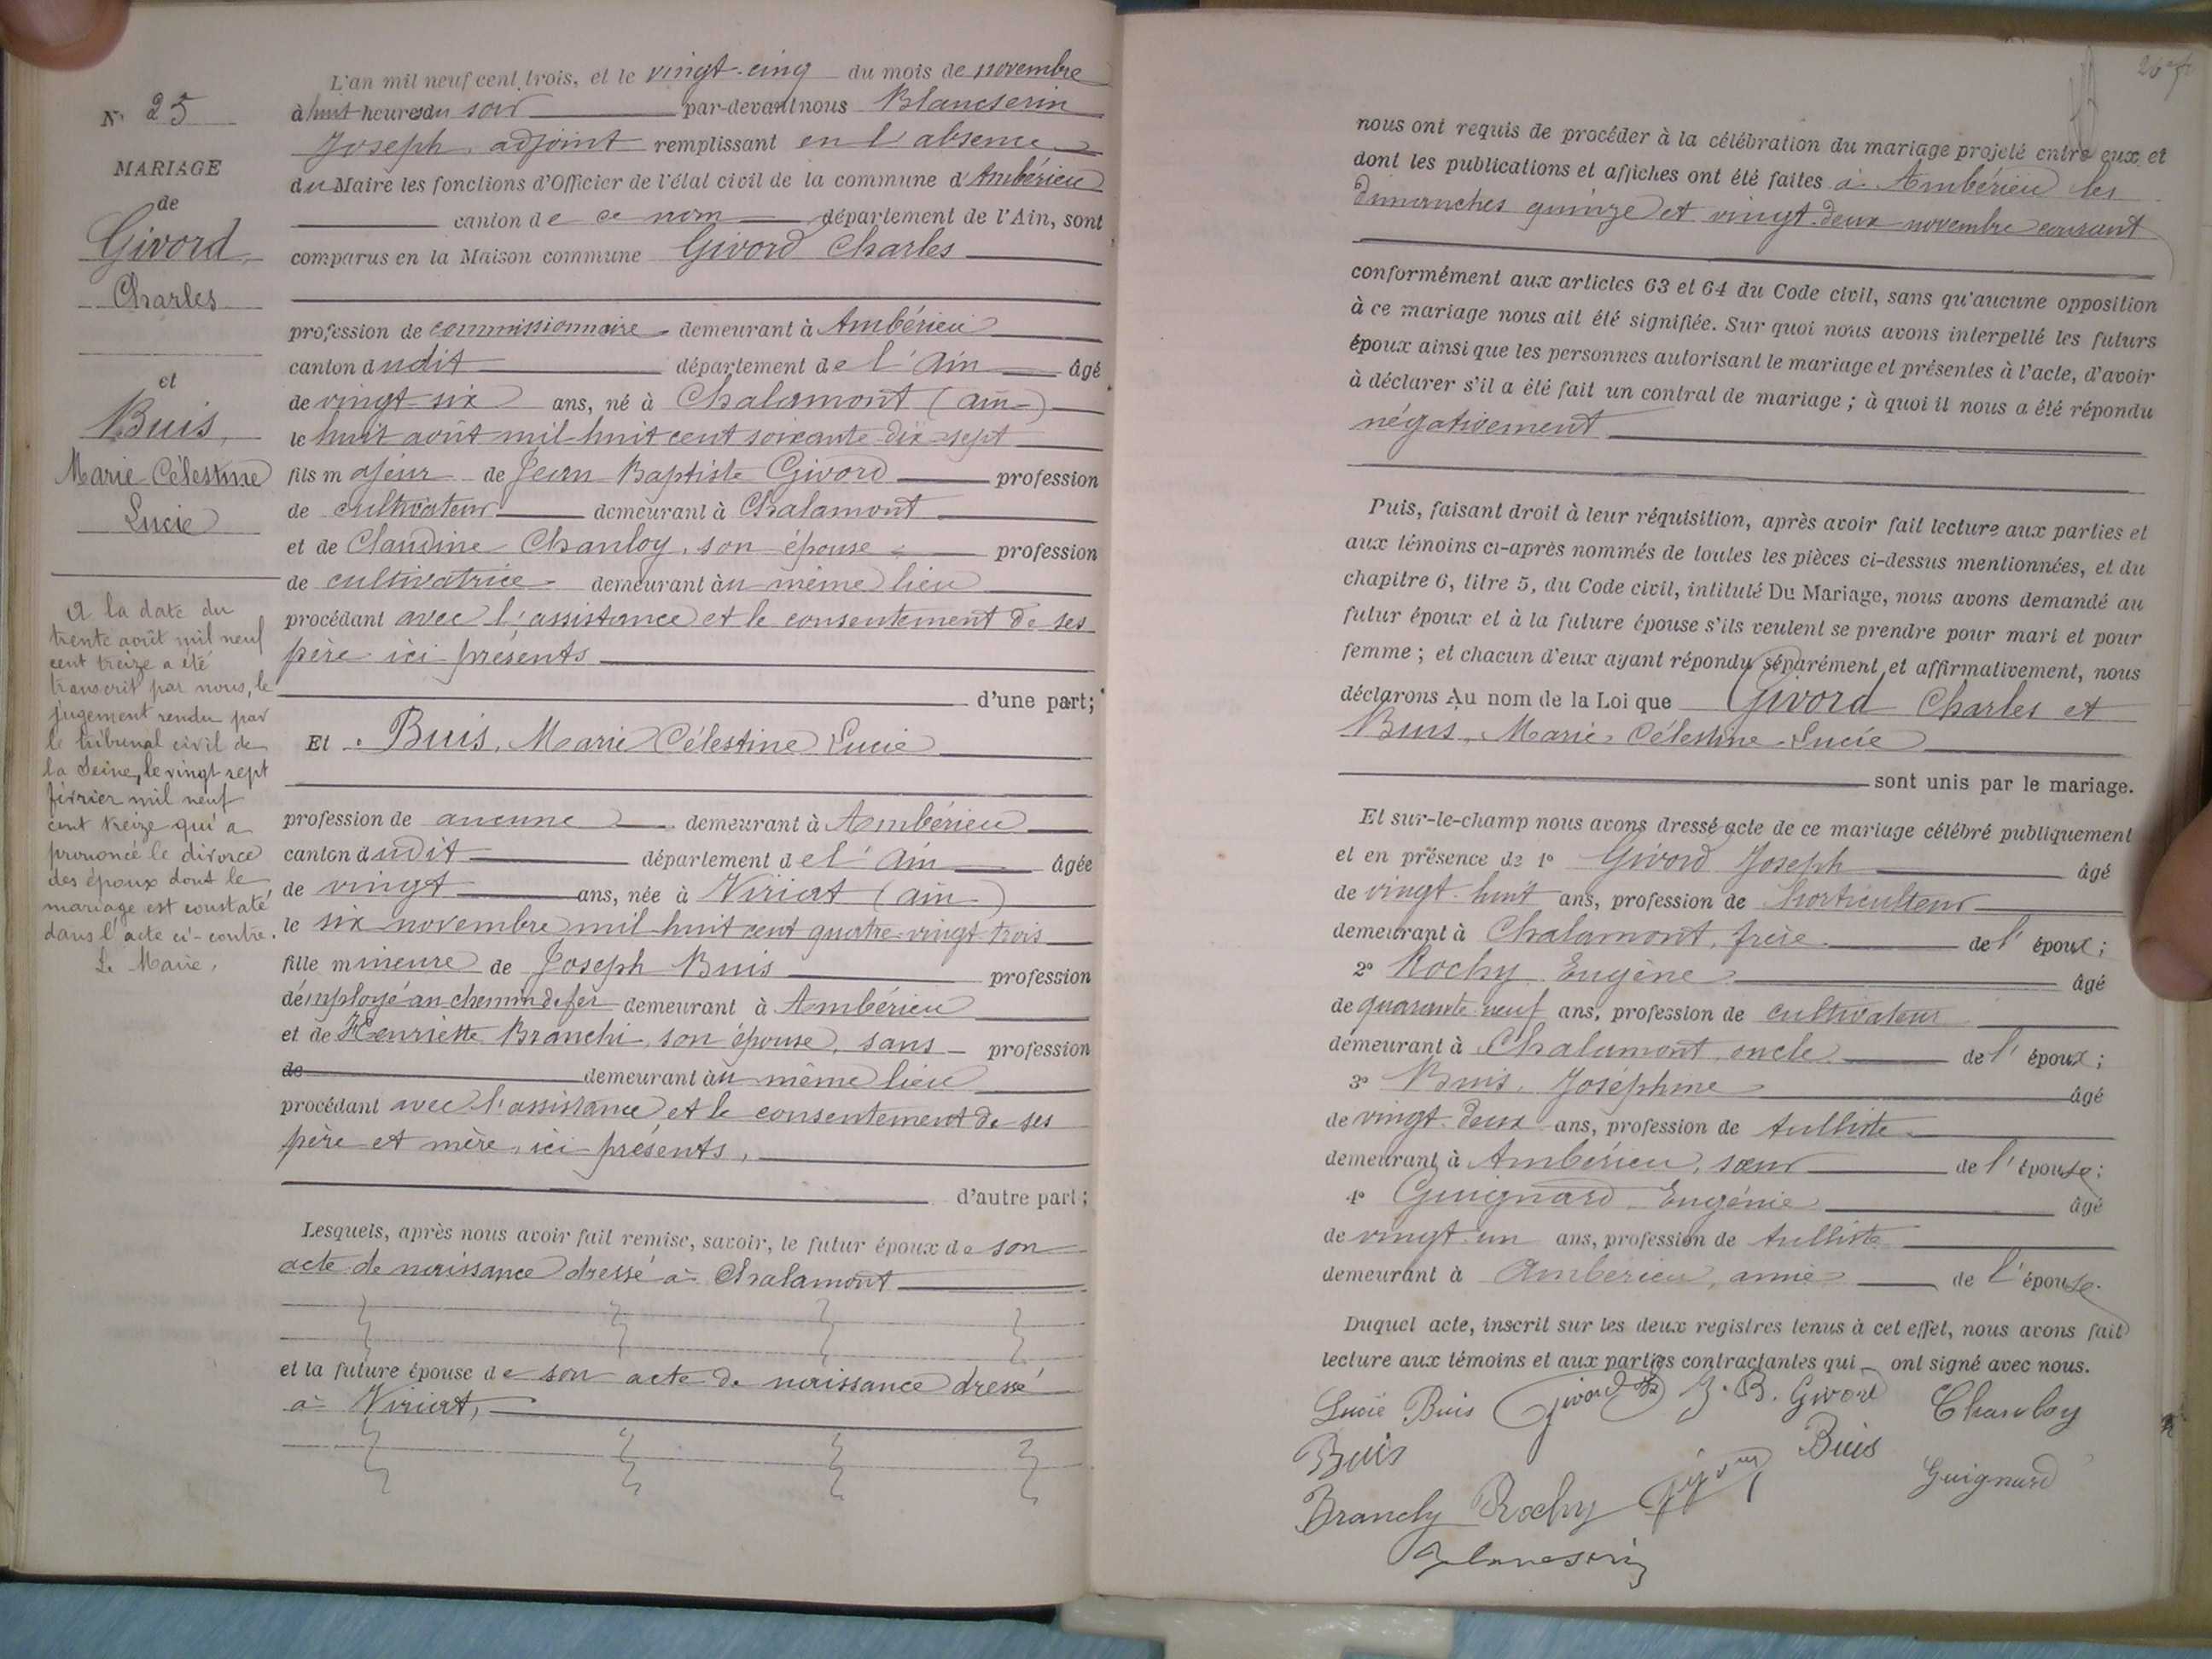 N° 25
MARIAGE
de
Givord
Charles
et
Buis,
Marie Célestine
Lucie
A la date du
trente août mil neuf
cent treize a été
transcrit par nous, le
jugement rendu par
le tribunal civil de
la Seine, le vingt sept
février mil neuf
cent treize qui a
prononcé le divorce
des époux dont le
mariage est constaté
dans l'acte ci-contre.
Le Maire,
L'an mil neuf cent trois, et le vingt-cinq du mois de novembre
à huit heures du soir par-devant nous Blancserin
Joseph, adjoint remplissant en l'absence
du Maire les fonctions d'Officier de l'état civil de la commune d'Ambérieu
canton de ce nom département de l'Ain, sont
comparus en la Maison commune Givord Charles
profession de commissionnaire demeurant à Ambérieu
canton dudit département de l'Ain âgé
de vingt-six ans, né à Chalamont (ain)
le huit août mil huit cent soixante dix-sept
fils majeur de Jean Baptiste Givord profession
de cultivateur demeurant à Chalamont
et de Claudine Chanloy, son épouse profession
de cultivatrice demeurant au même lieu
procédant avec l'assistance et le consentement de ses
père ici présents
d'une part;
Et Buis, Marie Célestine Lucie
profession de aucune demeurant à Ambérieu
canton dudit département de l'Ain âgée
de vingt ans, née à Viriat (ain)
le six novembre mil huit cent quatre-vingt trois
fille mineure de Joseph Buis profession
d'employé au chemin de fer demeurant à Ambérieu
et de Henriette Branchi, son épouse, sans profession
de demeurant au même lieu
procédant avec l'assistance et le consentement de ses
père et mère, ici présents,
d'autre part;
Lesquels, après nous avoir fait remise, savoir, le futur époux de son
acte de naissance dressé à Chalamont
et la future épouse de son acte de naissance dressé
à Viriat,
26
nous ont requis de procéder à la célébration du mariage projeté entre eux, et
dont les publications et affiches ont été faites à Ambérieu les
dimanches quinze et vingt-deux novembre courant
conformément aux articles 63 et 64 du Code civil, sans qu'aucune opposition
à ce mariage nous ait été signifiée. Sur quoi nous avons interpellé les futurs
époux ainsi que les personnes autorisant le mariage et présentes à l'acte, d'avoir
à déclarer s'il a été fait un contrat de mariage; à quoi il nous a été répondu
négativement
Puis, faisant droit à leur réquisition, après avoir fait lecture aux parties et
aux témoins ci-après nommés de toutes les pièces ci-dessus mentionnées, et du
chapitre 6, titre 5, du Code civil, intitulé Du Mariage, nous avons demandé au
futur époux et à la future épouse s'ils veulent se prendre pour mari et pour
femme; et chacun d'eux ayant répondu séparément et affirmativement, nous
déclarons Au nom de la Loi que Givord Charles et
Buis, Marie Célestine Lucie
sont unis par le mariage.
Et sur-le-champ nous avons dressé acte de ce mariage célébré publiquement
et en présence de 1° Givord Joseph âgé
de vingt-huit ans, profession de horticulteur
demeurant à Chalamont, frère de l'époux;
2° Rochy Eugène âgé
de quarante-neuf ans, profession de cultivateur
demeurant à Chalamont, oncle de l'époux;
3° Buis, Joséphine âgé
de vingt-deux ans, profession de tulliste
demeurant à Ambérieu, sœur de l'épouse;
4° Guignard Eugénie âgé
de vingt-un ans, profession de tulliste
demeurant à Ambérieu, amie de l'épouse.
Duquel acte, inscrit sur les deux registres tenus à cet effet, nous avons fait
lecture aux témoins et aux parties contractantes qui ont signé avec nous.
Lucie Buis Givord J. B. Givord Chanloy
Buis Buis
Branchy Rochy Guignard
Blancserin